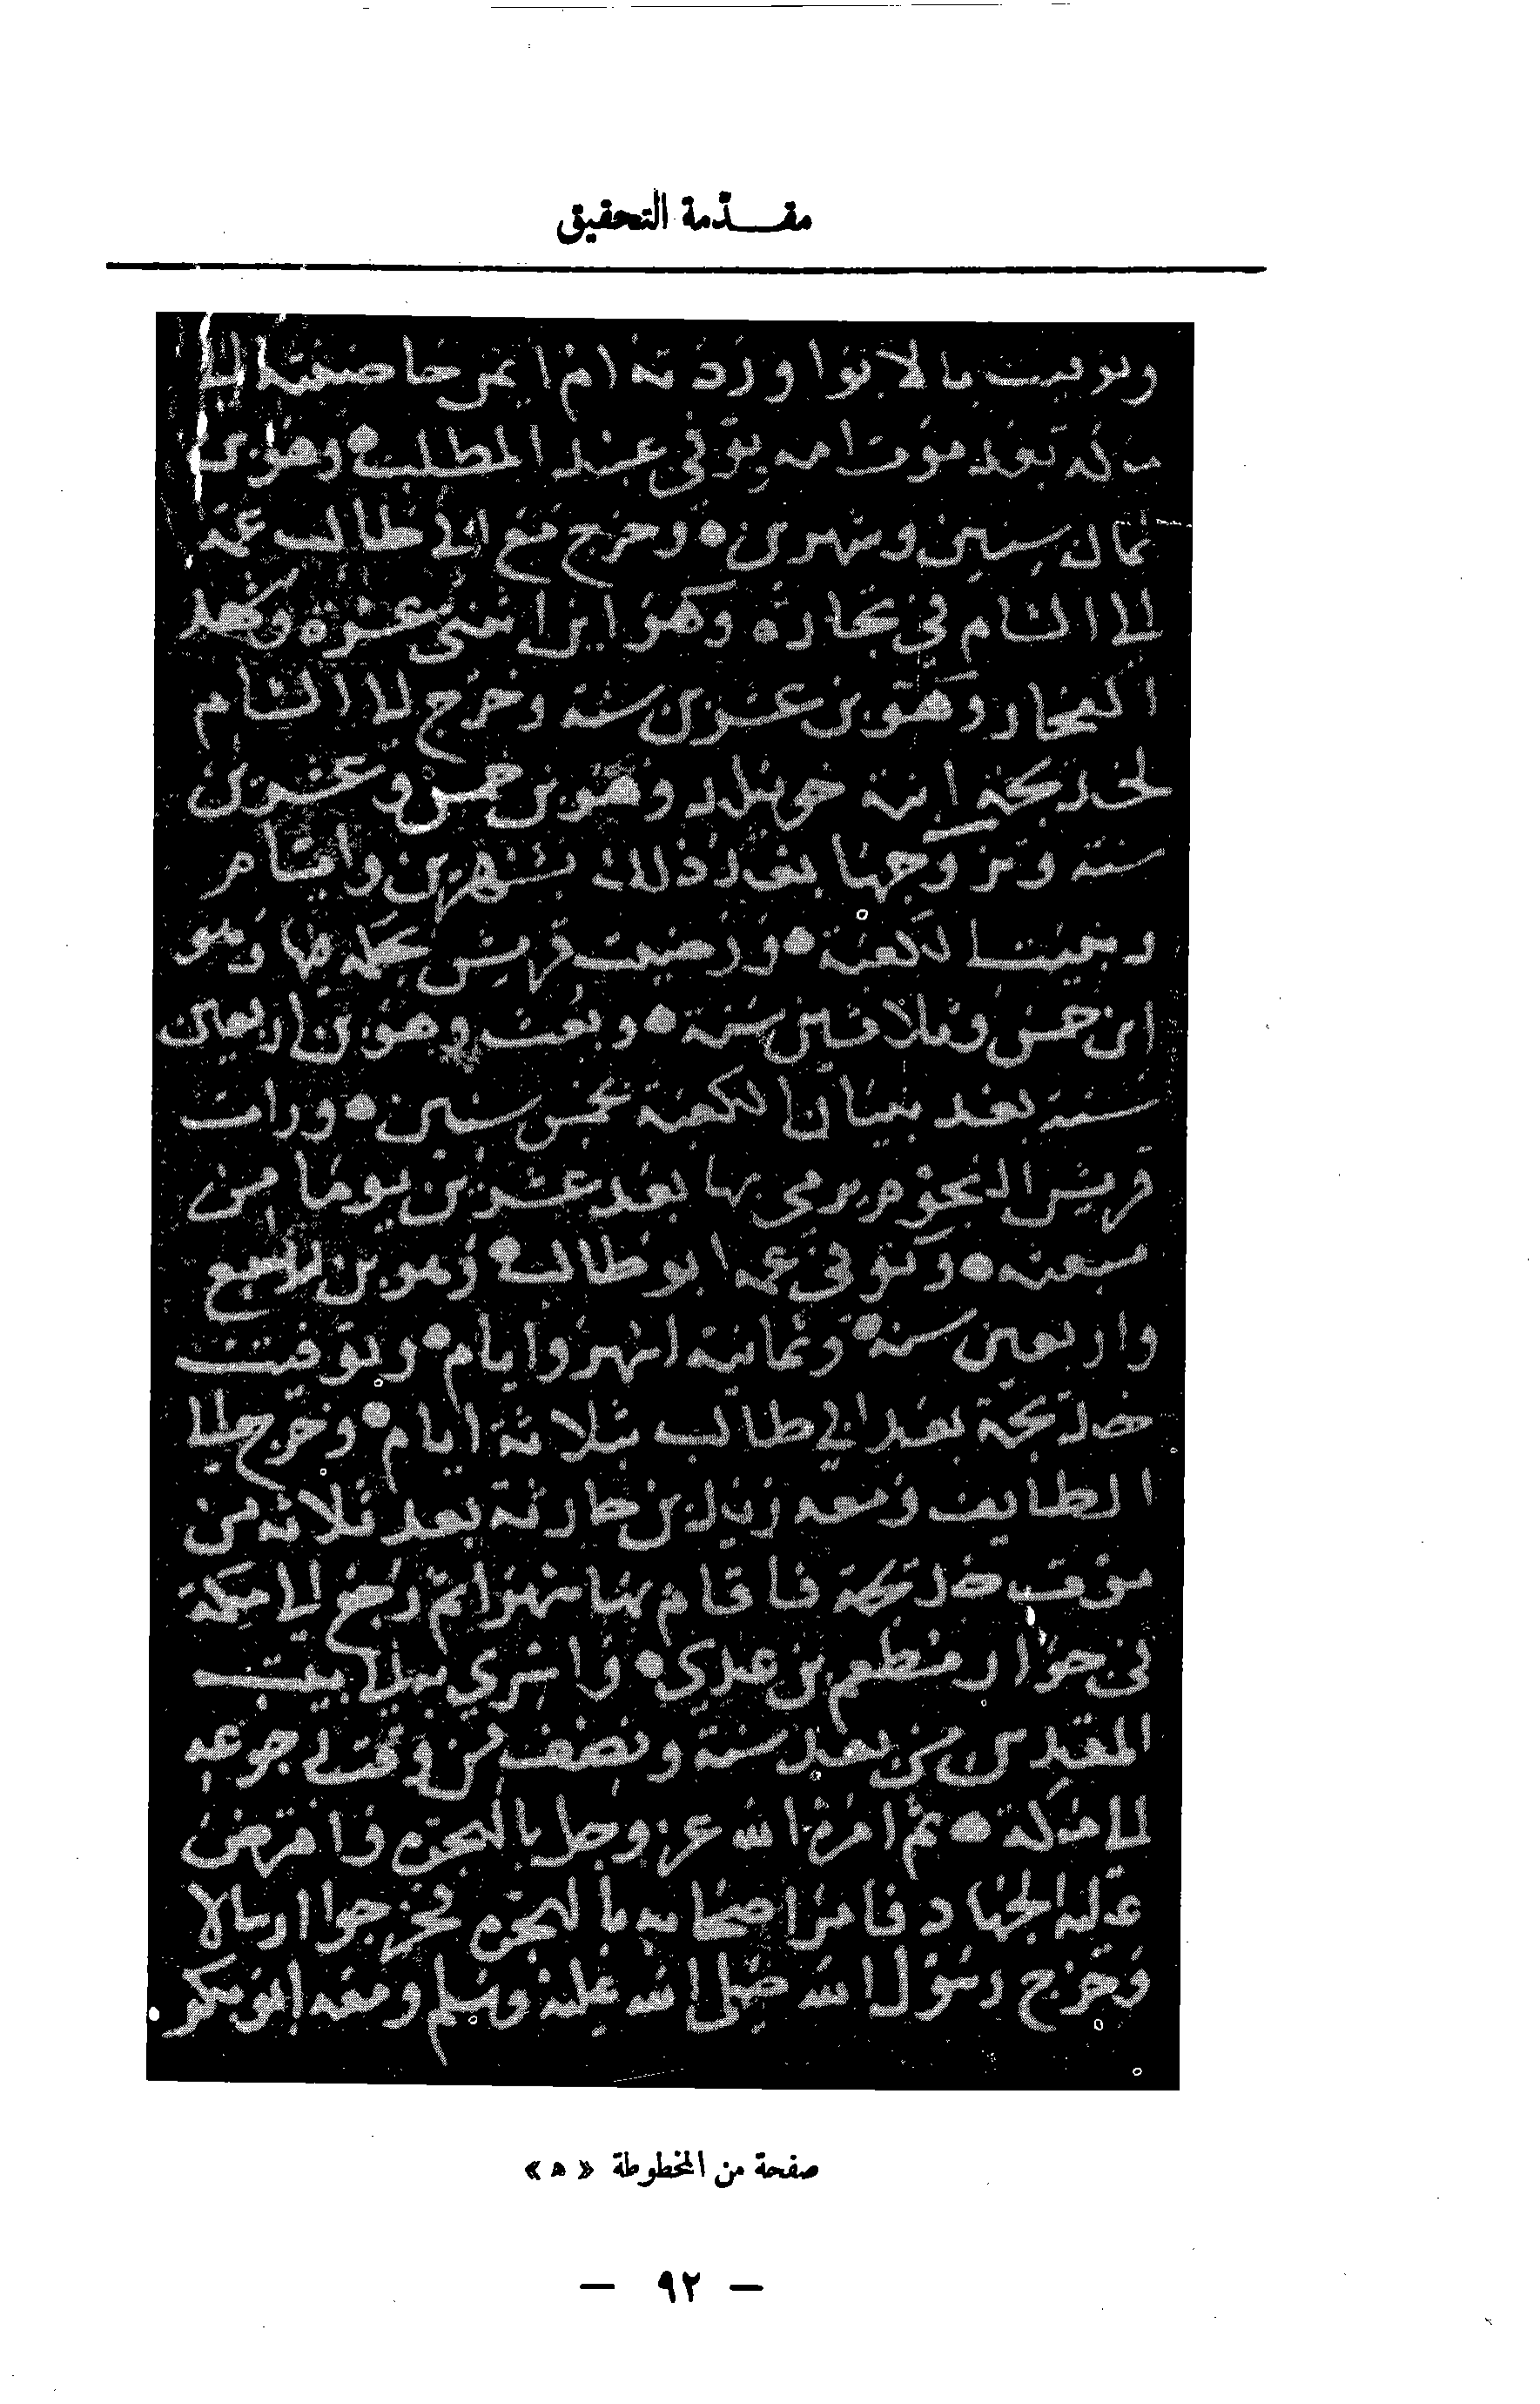 مقدّمة التحقيق
وتوفيت بالابوا وردته ام ايمن حاضنته الى
مكه بعد موت امه وتوفي عبد المطلب وهو بن
ثمان سنين وشهرين وخرج مع ابي طالب عمه
الى الشام في تجارة وهو ابن اثنتي عشره وشهد
الفجار وهو بن عشرين سنه وخرج الى الشام
لخديجة ابنة خويلد وهو بن خمس وعشرين
سنة وتزوجها بعد ذلك بشهرين وايام
وبنيت الكعبة ورضيت قريش بحكمه فيها وهو
ابن خمس وثلاثين سنة وبعث وهو بن اربعين
سنة بعد بنيان الكعبة بخمس سنين ورات
قريش النجوم يرمى بها بعد عشرين يوما من
مبعثه وتوفي عمه ابو طالب وهو بن تسع
واربعين سنه وثمانية اشهر وايام وتوفيت
خديجة بعد ابي طالب بثلاثة ايام وخرج الى
الطايف ومعه زيد بن حارثة بعد ثلاثه من
موت خديجة فاقام بها شهرا ثم رجع الى مكة
في جوار مطعم بن عدي واسري به الى بيت
المقدس من بعد سنة ونصف من وقت رجوعه
الى مكة ثم امره الله عز وجل بالهجرة وافترض
عليه الجهاد فامر اصحابه بالهجرة فخرجوا ارسالا
وخرج رسول الله صلى الله عليه وسلم ومعه ابو بكر
صفحة من المخطوطة « ه‍ »
— ٩٢ —